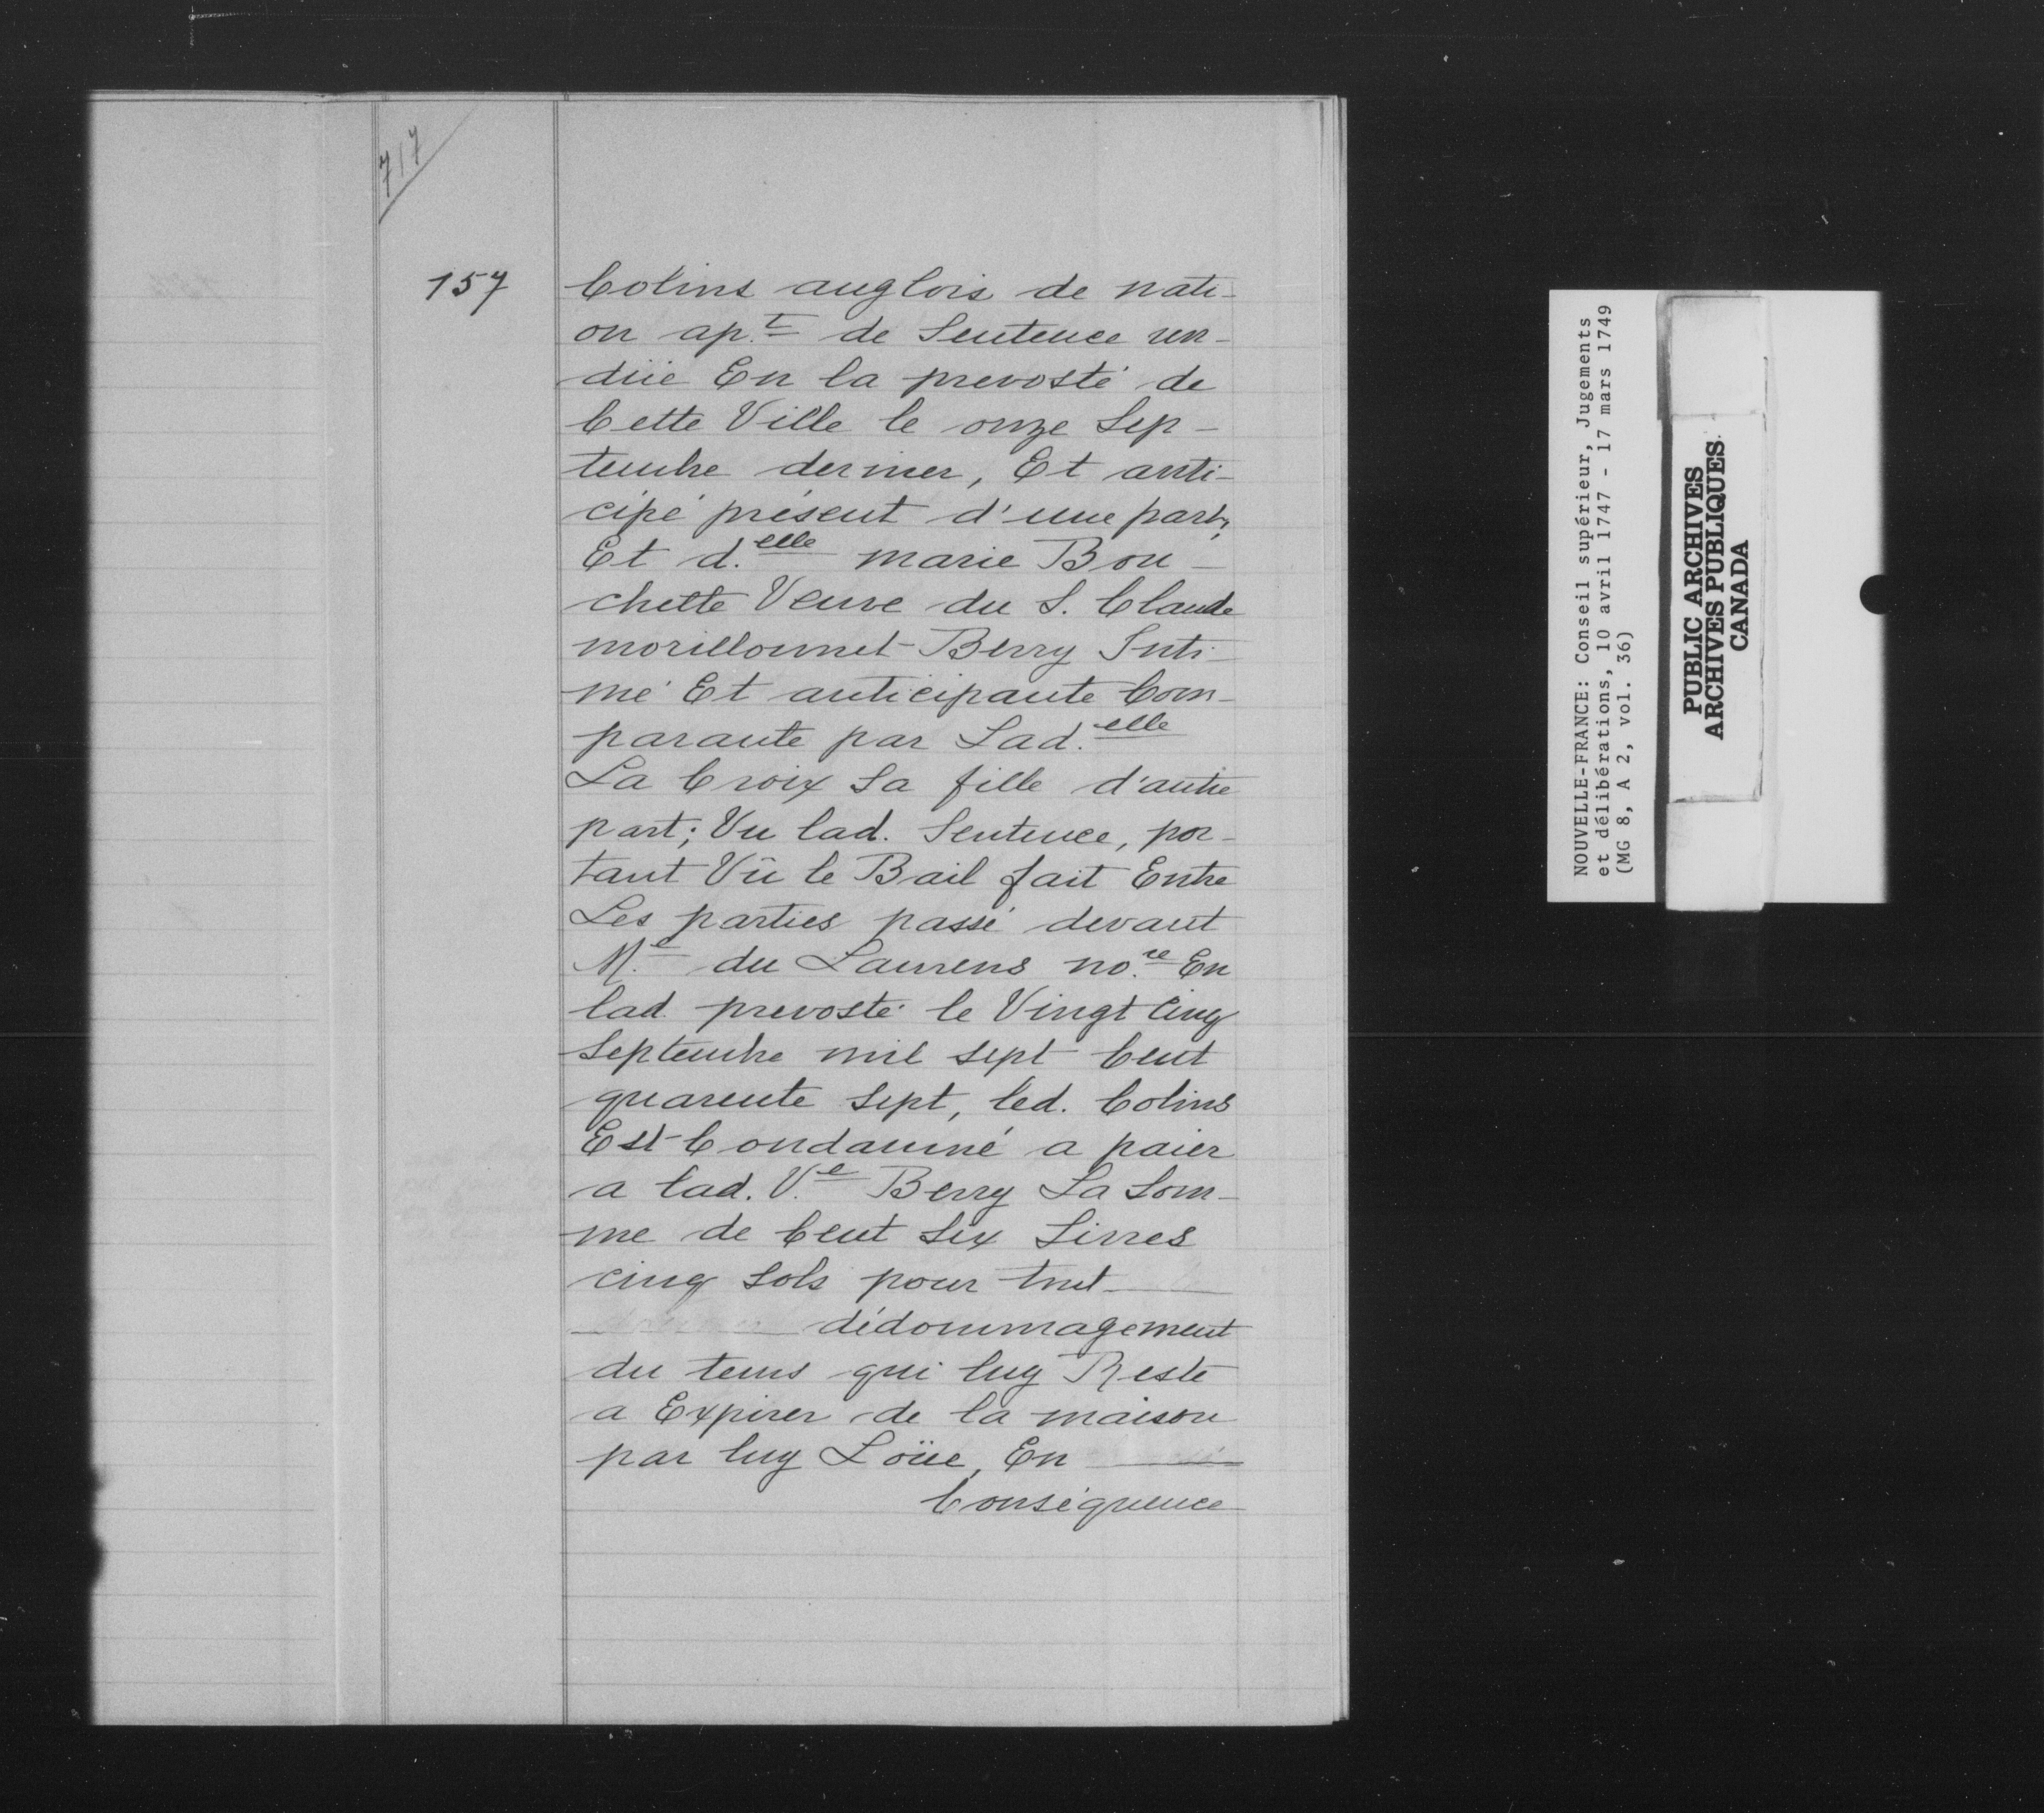 717
157
Colins anglois de nati-
on ap.t de Sentence ren-
düe En la prevosté de
Cette Ville le onze Sep-
tembre dernier, Et anti-
cipé présent d'une part,
Et d.elle marie Bou-
chette Veuve du S. Claude
morillonnet Berry Inti-
mé Et anticipante Com-
parante par Lad.elle
La Croix Sa fille d'autre
part; Vu lad. Sentence, por-
tant Vû le Bail fait Entre
Les parties passé devant
M.e du Laurens no.re En
lad prevosté le Vingt Cinq
Septembre mil sept Cent
quarente sept, led. Colins
Est Condamné a paier
a lad. V.e Berry La Som-
me de Cent Six Livres
cinq Sols pour tout
dédommagement
du tems qui luy Reste
a Expirer de la maison
par luy Loüe, En
Conséquence
NOUVELLE-FRANCE: Conseil supérieur, Jugements
et délibérations, 10 avril 1747 - 17 mars 1749
(MG 8, A 2, vol. 36)
PUBLIC ARCHIVES
ARCHIVES PUBLIQUES
CANADA